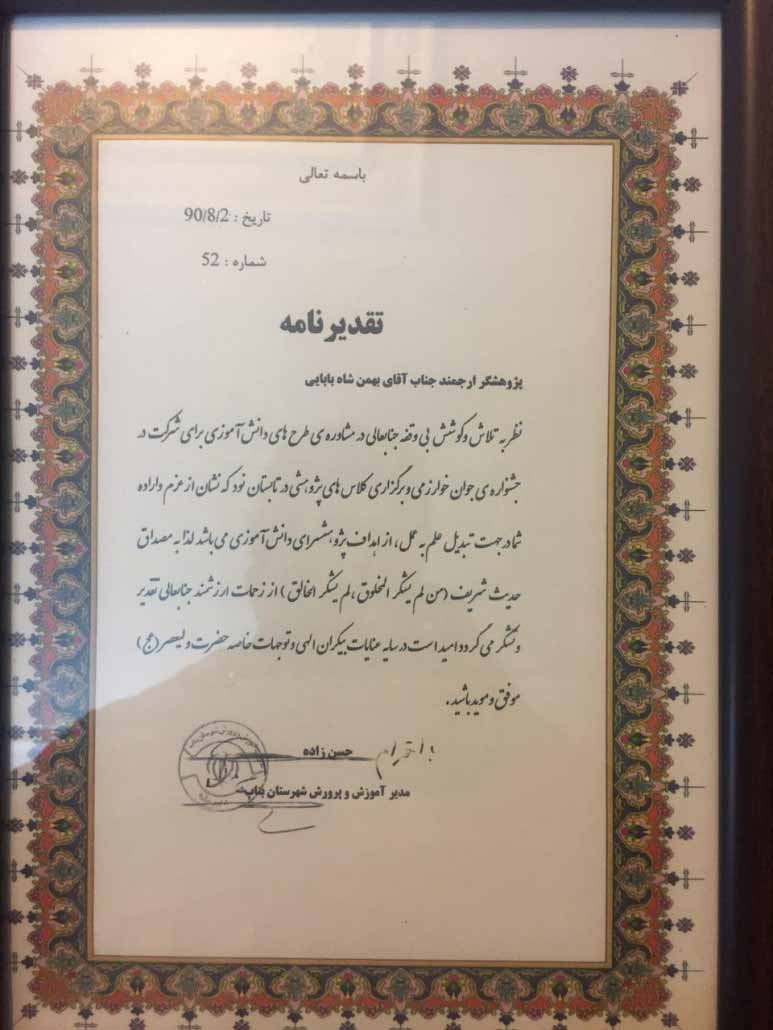 باسمه تعالی
تاریخ : 90/8/2
شماره : 52
تقدیرنامه
پژوهشگر ارجمند جناب آقای بهمن شاه بابایی
نظر به تلاش و کوشش بی وقفه جنابعالی در مشاوره ی طرح های دانش آموزی برای شرکت در
جشنواره ی جوان خوارزمی و برگزاری کلاس های پژوهشی در تابستان نود که نشان از عزم و اراده
شما در جهت تبدیل علم به عمل ، از اهداف پژوهشسرای دانش آموزی می باشد لذا به مصداق
حدیث شریف (من لم یشکر المخلوق ، لم یشکر الخالق ) از زحمات ارزشمند جنابعالی تقدیر
و تشکر می گردد امید است در سایه عنایات بیکران الهی و توجهات خاصه حضرت ولیعصر (عج)
موفق و موید باشید .
با احترام
حسن زاده
مدیر آموزش و پرورش شهرستان بناب